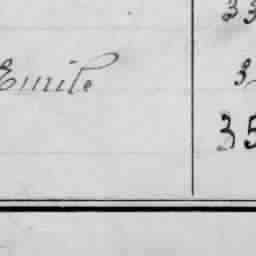 33
Emile 3
35